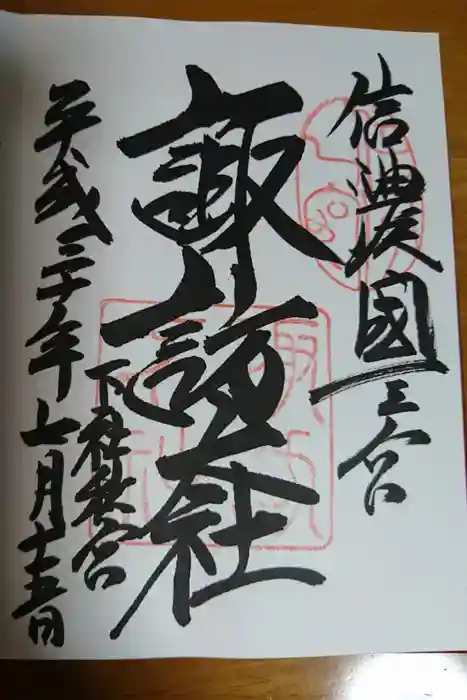 信濃國一宮
諏訪大社
下社秋宮
平成三十年七月十五日